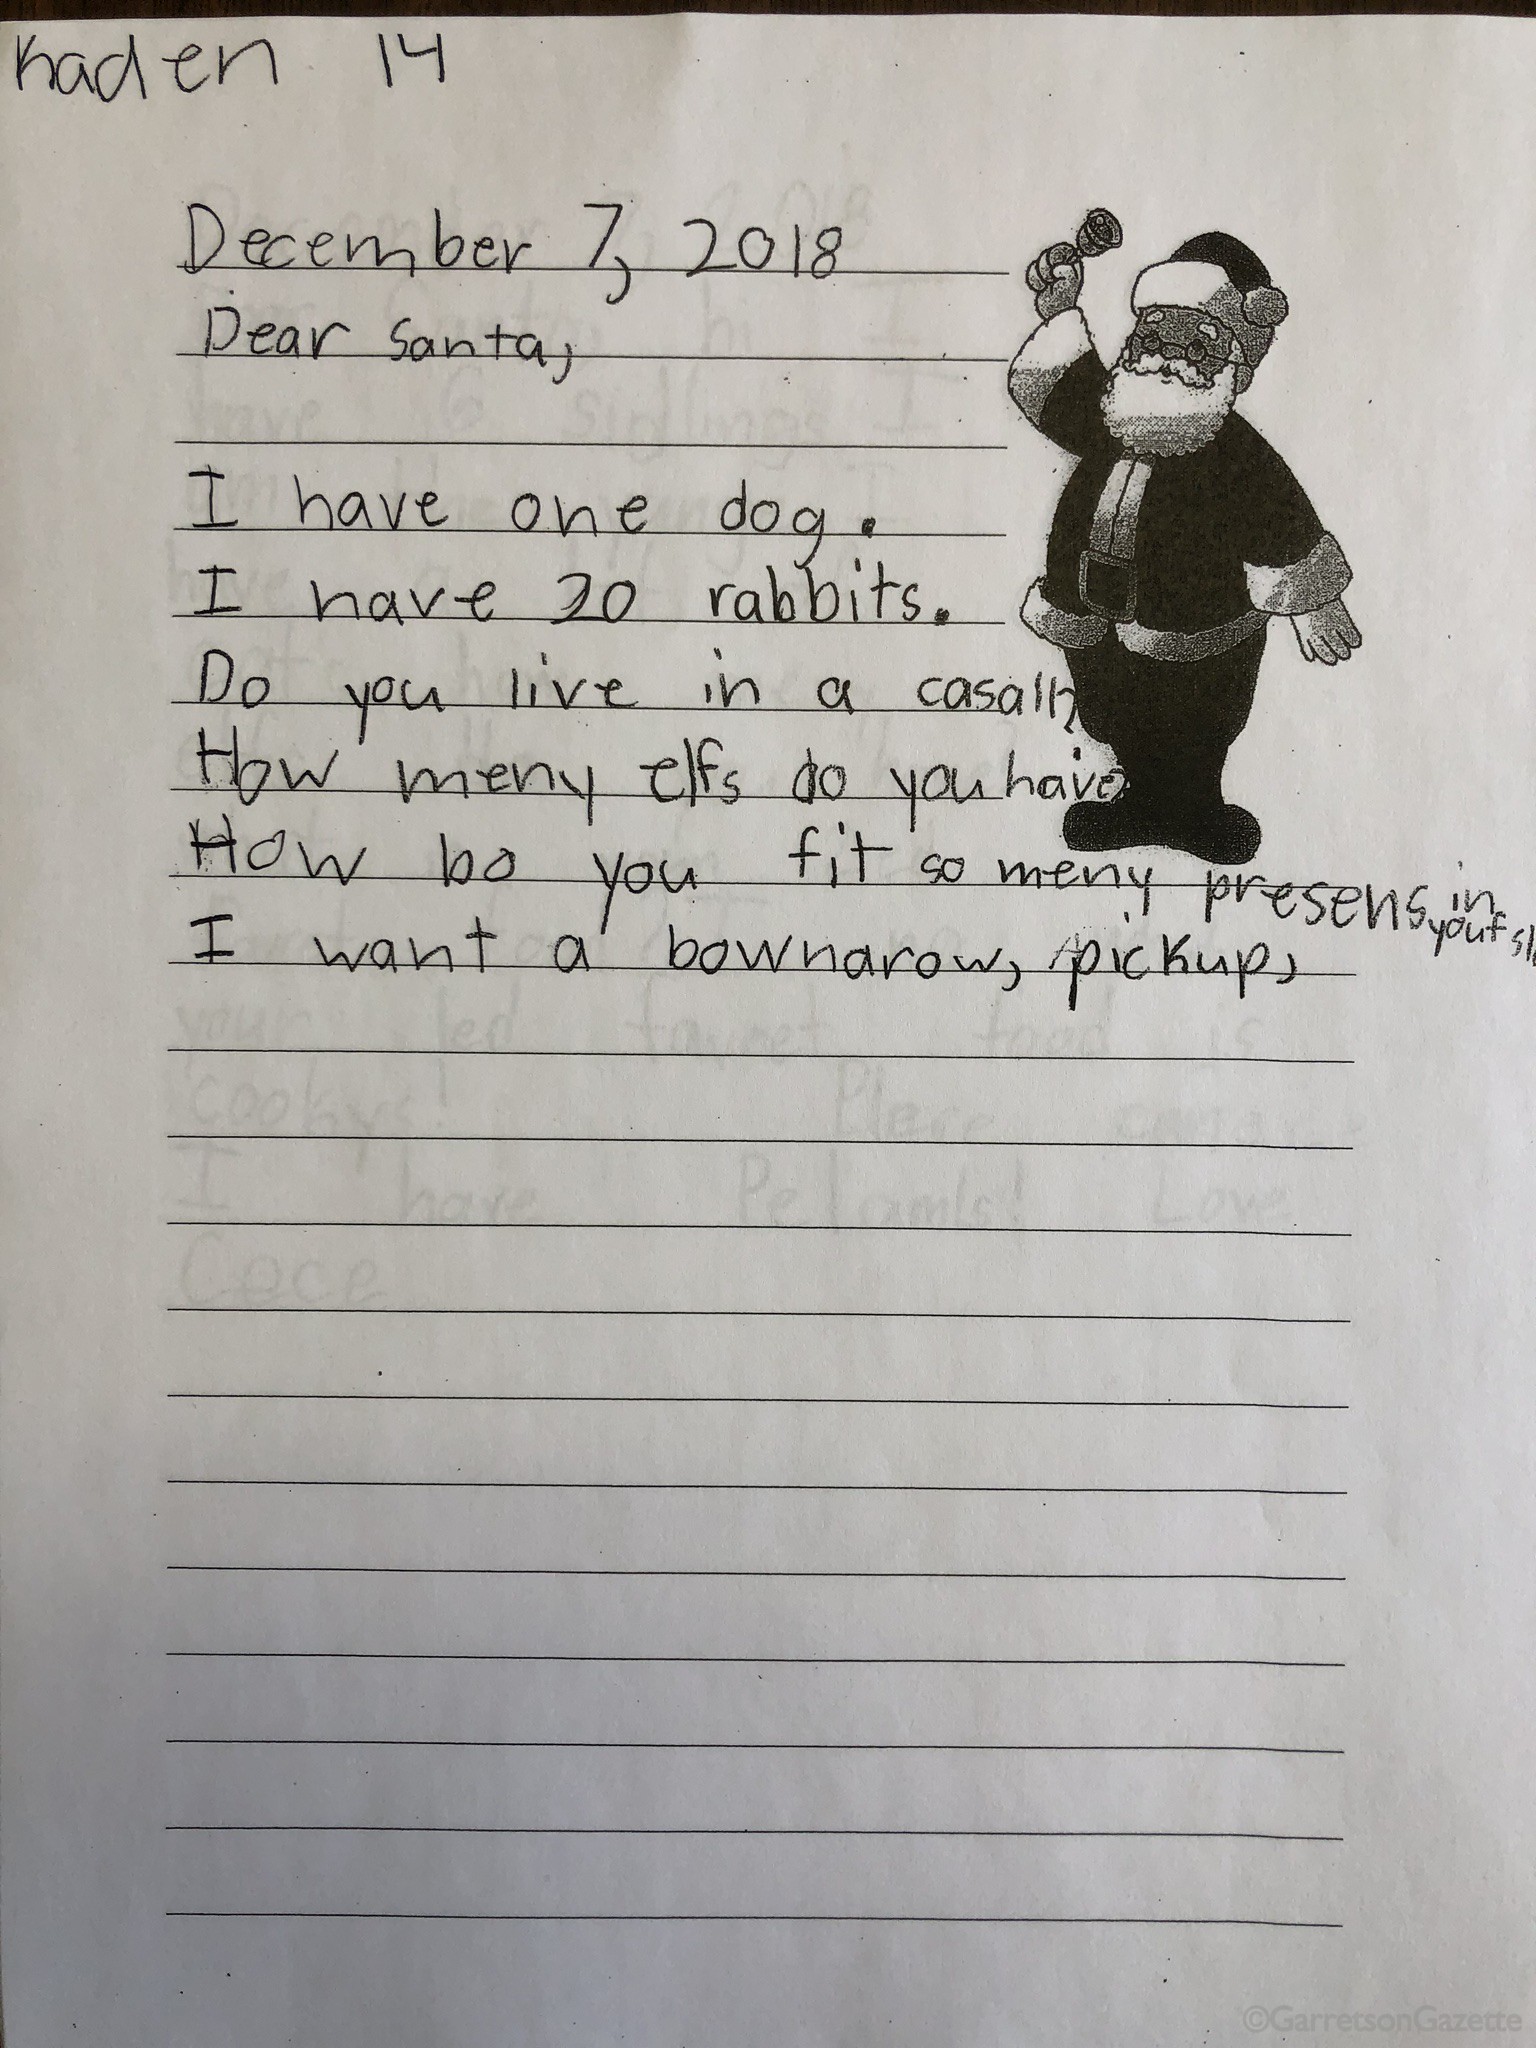 Kaden 14
December 7, 2018
Dear Santa,
I have one dog.
I have 20 rabbits.
Do you live in a
How meny elfs do you have
How bo you fit so meny presens in your
I want a bownarow, pickup,
©GarretsonGazette